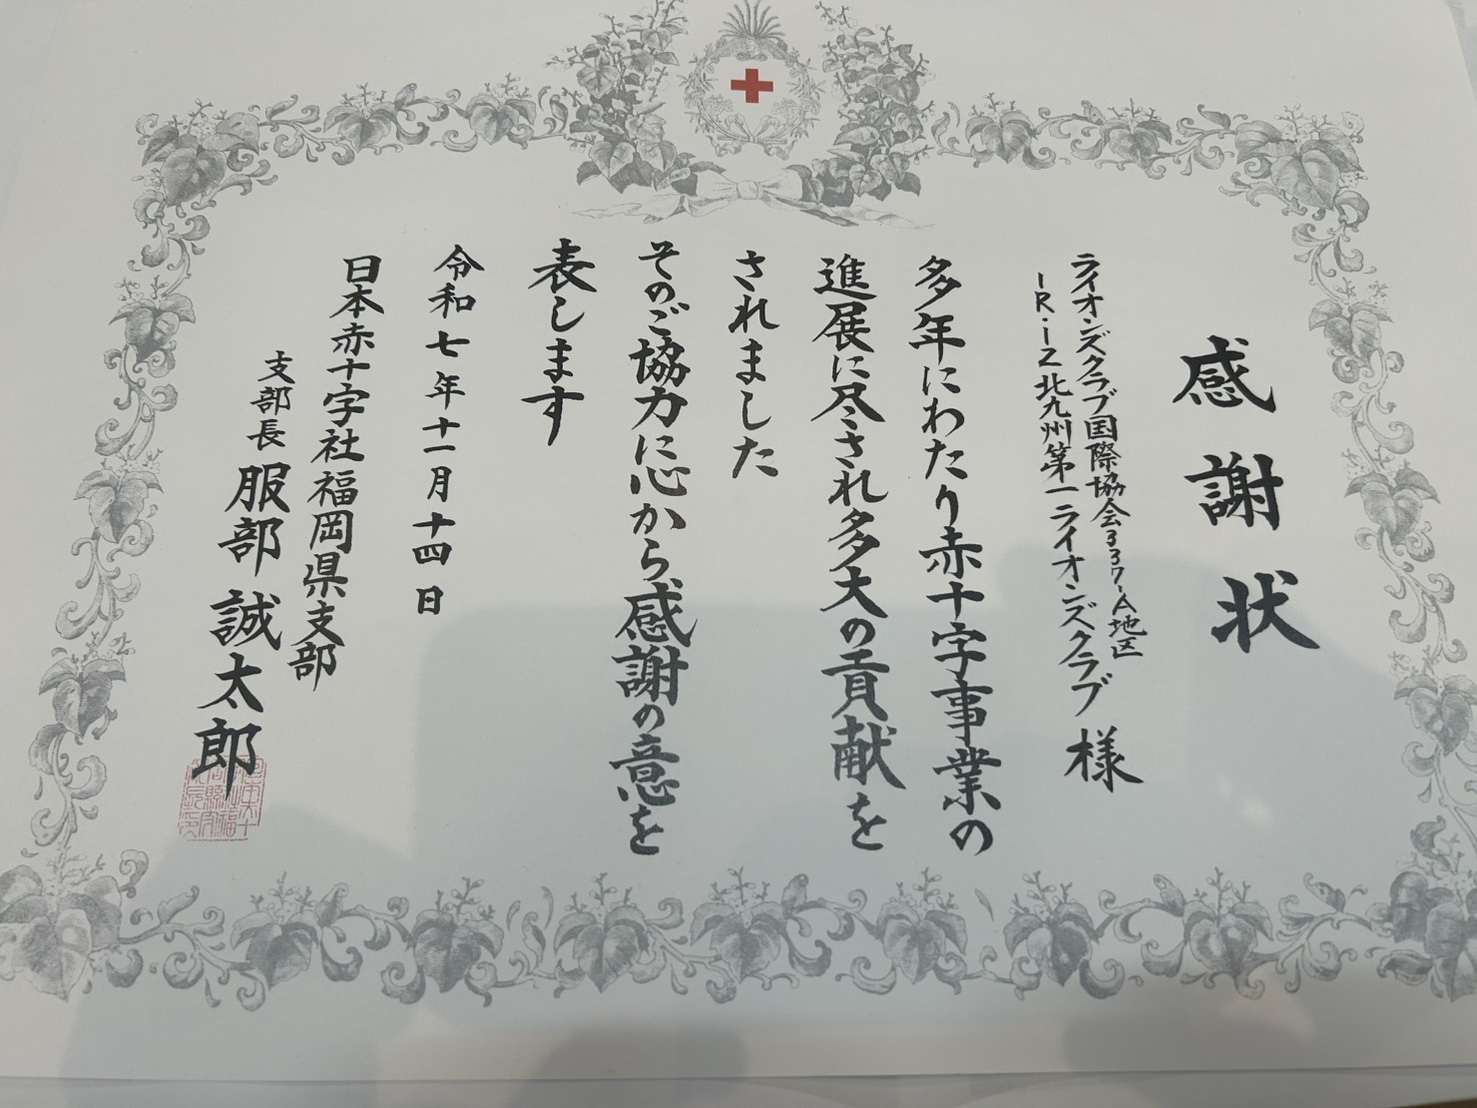 感謝状
ライオンズクラブ国際協会337-A地区
1R-1Z北九州第一ライオンズクラブ 様
多年にわたり赤十字事業の
進展に尽され多大の貢献を
されました
そのご協力に心から感謝の意を
表します
令和七年十一月十四日
日本赤十字社福岡県支部
支部長 服部誠太郎